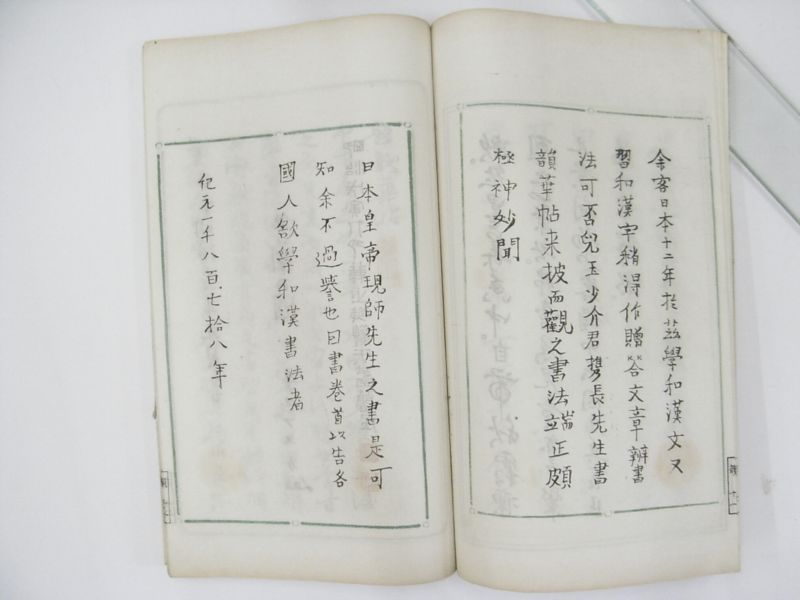 余客日本十二年於茲學和漢文又
習和漢字稍得作贈答文章辨書
法可否兒玉少介君携長先生書
韻華帖来披而觀之書法端正頗
極神妙聞
日本皇帝現師先生之書是可
知余不過誉也曰書卷首以告各
國人欲學和漢書法者
紀元一千八百七拾八年